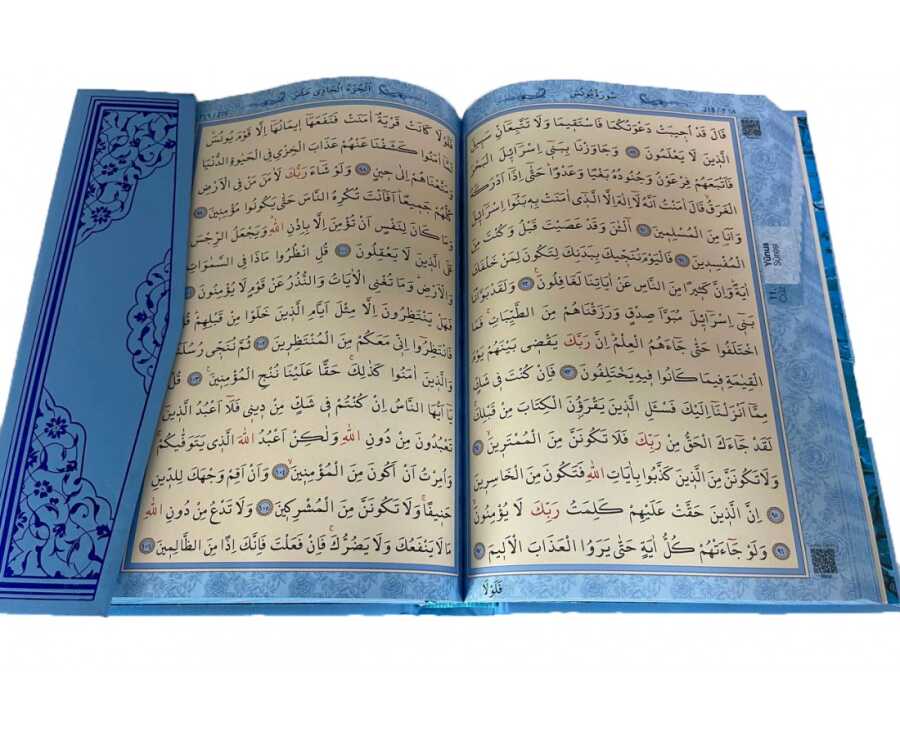 سورة يونس
قَالَ قَدْ اُج۪يبَتْ دَعْوَتُكُمَا فَاسْتَق۪يمَا وَلَا تَتَّبِعَٓانِّ سَب۪يلَ
الَّذ۪ينَ لَا يَعْلَمُونَ ﴿٨٩﴾ وَجَاوَزْنَا بِبَن۪ٓي اِسْرَٓائ۪لَ الْبَحْرَ
فَاَتْبَعَهُمْ فِرْعَوْنُ وَجُنُودُهُ بَغْيًا وَعَدْوًاۜ حَتّٰٓى اِذَٓا اَدْرَكَهُ
الْغَرَقُۙ قَالَ اٰمَنْتُ اَنَّهُ لَٓا اِلٰهَ اِلَّا الَّذ۪ٓي اٰمَنَتْ بِه۪ بَنُٓوا اِسْرَٓائ۪لَ
وَاَنَا۬ مِنَ الْمُسْلِم۪ينَ ﴿٩٠﴾ آٰلْـٰٔنَ وَقَدْ عَصَيْتَ قَبْلُ وَكُنْتَ مِنَ
الْمُفْسِد۪ينَ ﴿٩١﴾ فَالْيَوْمَ نُنَجّ۪يكَ بِبَدَنِكَ لِتَكُونَ لِمَنْ خَلْفَكَ
اٰيَةًۜ وَاِنَّ كَث۪يرًا مِنَ النَّاسِ عَنْ اٰيَاتِنَا لَغَافِلُونَ۟ ﴿٩٢﴾ وَلَقَدْ بَوَّأْنَا
بَن۪ٓي اِسْرَٓائ۪لَ مُبَوَّاَ صِدْقٍ وَرَزَقْنَاهُمْ مِنَ الطَّيِّبَاتِۚ فَمَا
اخْتَلَفُوا حَتّٰى جَٓاءَهُمُ الْعِلْمُۜ اِنَّ رَبَّكَ يَقْض۪ي بَيْنَهُمْ يَوْمَ
الْقِيٰمَةِ ف۪يمَا كَانُوا ف۪يهِ يَخْتَلِفُونَ ﴿٩٣﴾ فَاِنْ كُنْتَ ف۪ي شَكٍّ
مِمَّٓا اَنْزَلْنَٓا اِلَيْكَ فَسْـَٔلِ الَّذ۪ينَ يَقْرَؤُ۫نَ الْكِتَابَ مِنْ قَبْلِكَۚ
لَقَدْ جَٓاءَكَ الْحَقُّ مِنْ رَبِّكَ فَلَا تَكُونَنَّ مِنَ الْمُمْتَر۪ينَۙ ﴿٩٤﴾
وَلَا تَكُونَنَّ مِنَ الَّذ۪ينَ كَذَّبُوا بِاٰيَاتِ اللّٰهِ فَتَكُونَ مِنَ الْخَاسِر۪ينَ
﴿٩٥﴾ اِنَّ الَّذ۪ينَ حَقَّتْ عَلَيْهِمْ كَلِمَتُ رَبِّكَ لَا يُؤْمِنُونَۙ
﴿٩٦﴾ وَلَوْ جَٓاءَتْهُمْ كُلُّ اٰيَةٍ حَتّٰى يَرَوُا الْعَذَابَ الْاَل۪يمَ ﴿٩٧﴾
فَلَوْلَا
Yûnus
Sûresi
اَلْجُزْءُ الْحَادِى عَشَرَ
فَلَوْلَا كَانَتْ قَرْيَةٌ اٰمَنَتْ فَنَفَعَهَٓا ا۪يمَانُهَٓا اِلَّا قَوْمَ يُونُسَۜ
لَمَّٓا اٰمَنُوا كَشَفْنَا عَنْهُمْ عَذَابَ الْخِزْيِ فِي الْحَيٰوةِ الدُّنْيَا
وَمَتَّعْنَاهُمْ اِلٰى ح۪ينٍ ﴿٩٨﴾ وَلَوْ شَٓاءَ رَبُّكَ لَاٰمَنَ مَنْ فِي الْاَرْضِ
كُلُّهُمْ جَم۪يعًاۜ اَفَاَنْتَ تُكْرِهُ النَّاسَ حَتّٰى يَكُونُوا مُؤْمِن۪ينَ ﴿٩٩﴾
وَمَا كَانَ لِنَفْسٍ اَنْ تُؤْمِنَ اِلَّا بِاِذْنِ اللّٰهِۜ وَيَجْعَلُ الرِّجْسَ
عَلَى الَّذ۪ينَ لَا يَعْقِلُونَ ﴿١٠٠﴾ قُلِ انْظُرُوا مَاذَا فِي السَّمٰوَاتِ
وَالْاَرْضِۜ وَمَا تُغْنِي الْاٰيَاتُ وَالنُّذُرُ عَنْ قَوْمٍ لَا يُؤْمِنُونَ ﴿١٠١﴾
فَهَلْ يَنْتَظِرُونَ اِلَّا مِثْلَ اَيَّامِ الَّذ۪ينَ خَلَوْا مِنْ قَبْلِهِمْۜ قُلْ
فَانْتَظِرُٓوا اِنّ۪ي مَعَكُمْ مِنَ الْمُنْتَظِر۪ينَ ﴿١٠٢﴾ ثُمَّ نُنَجّ۪ي رُسُلَنَا
وَالَّذ۪ينَ اٰمَنُوا كَذٰلِكَۚ حَقًّا عَلَيْنَا نُنْجِ الْمُؤْمِن۪ينَ۟ ﴿١٠٣﴾ قُلْ
يَٓا اَيُّهَا النَّاسُ اِنْ كُنْتُمْ ف۪ي شَكٍّ مِنْ د۪ين۪ي فَلَٓا اَعْبُدُ الَّذ۪ينَ
تَعْبُدُونَ مِنْ دُونِ اللّٰهِ وَلٰكِنْ اَعْبُدُ اللّٰهَ الَّذ۪ي يَتَوَفّٰيكُمْۚ
وَاُمِرْتُ اَنْ اَكُونَ مِنَ الْمُؤْمِن۪ينَۙ ﴿١٠٤﴾ وَاَنْ اَقِمْ وَجْهَكَ لِلدّ۪ينِ
حَن۪يفًاۚ وَلَا تَكُونَنَّ مِنَ الْمُشْرِك۪ينَ ﴿١٠٥﴾ وَلَا تَدْعُ مِنْ دُونِ اللّٰهِ
مَا لَا يَنْفَعُكَ وَلَا يَضُرُّكَۚ فَاِنْ فَعَلْتَ فَاِنَّكَ اِذًا مِنَ الظَّالِم۪ينَ ﴿١٠٦﴾